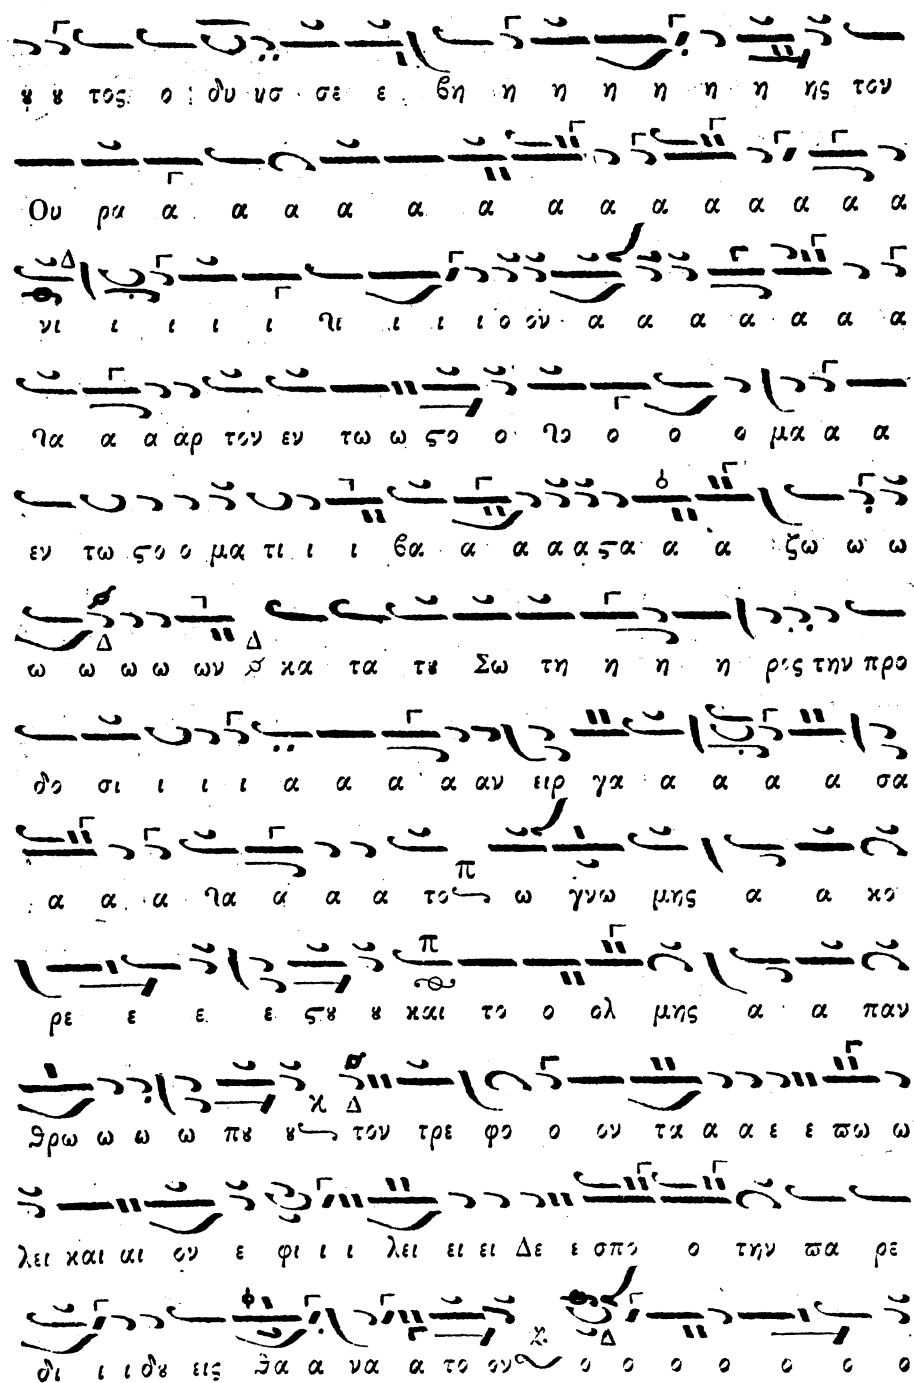 ȣ ȣ τος ο δυ υσ σε ε βη η η η η η ης τον
Ου ρα α α α α α α α α α α α α α α
νι ι ι ι ι τι ι ι ι ο ον α α α α α α α
τα α α αρ τον εν τω ω ϛο ο το ο ο ο μα α α
εν τω ϛο ο μα τι ι ι βα α α α α ϛα α α ζω ω ω
ω ω ω ω ων κα τα τȣ Σω τη η η η ρος την προ
δο σι ι ι ι α α α α αν ειρ γα α α α α σα
α α α τα α α α το ω γνω μης α α κο
ρε ε ε ε ϛȣ ȣ και το ο ολ μης α α παν
θρω ω ω ω πȣ ȣ τον τρε φο ο ον τα α α ε ε πω ω
λει και αι ον ε φι ι ι λει ει ει Δε ε σπο ο την πα ρε
δι ι ι δȣ εις θα α να α το ον ο ο ο ο ο ο ο